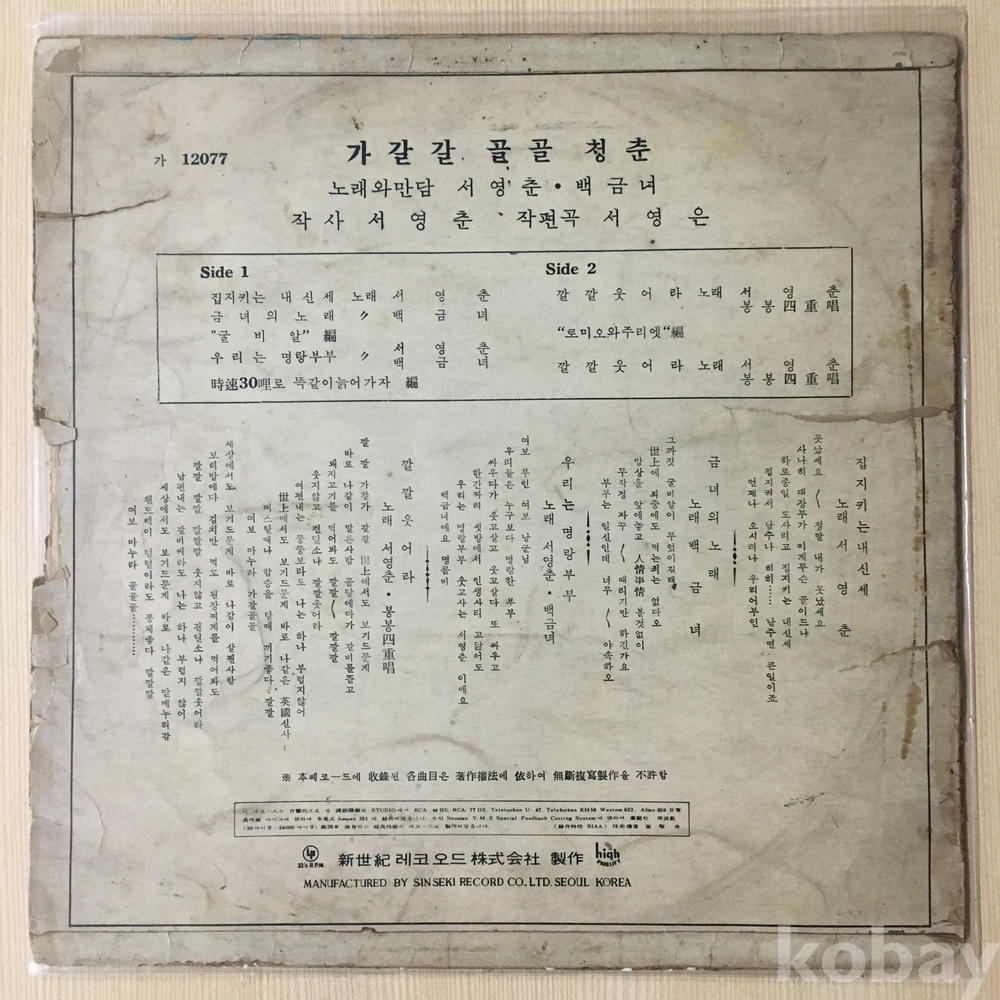 가 12077
가갈갈 골골 청춘
노래와만담 서영춘・백금녀
작사 서영춘 작편곡 서영은
Side 1
집지키는 내신세 노래 서영춘
금녀의노래 〃 백금녀
"굴비알" 編
우리는 명랑부부 〃 서영춘 백금녀
時速30哩로 똑같이늙어가자 編
Side 2
깔깔웃어라 노래 서영춘 봉봉四重唱
"로미오와주리엣"編
깔깔웃어라 노래 서영춘 봉봉四重唱
집지키는내신세
노래 서영춘
못났세요 〱 정말 내가 못났세요
사나히 대장부가 이게무슨 꼴이드냐
하로종일 도사리고 집지키는 내신세
집지켜서 남주나 히히…… 남주면 큰일이죠
언제나 오시려나 우리어부인
금녀의노래
노래 백금녀
그까짓 굴비알이 무엇이길래
世上에 죄중에도 먹는죄는 없다오
밥상을 앞에놓고 人情事情 볼것없이
무작정 자꾸 〱 때리기만 하긴가요
부부는 일신인데 너무 〱 야속하오
우리는명랑부부
노래 서영춘・백금녀
여보 부인 여보 낭군님
우리들은 누구보다 명랑한 부부
싸우다가 웃고살고 웃고살다 또 싸우고
한간짜리 셋방에서 인생사리 고달어도
우리는 명랑부부 웃고사는 서영춘 이에요
백금녀에요 명콤비
깔깔웃어라
노래 서영춘・봉봉四重唱
깔 깔 가갈가 갈갈 世上에서도 보기드문게
바로 나같이 말른사람 곰탕에다가 갈비를뜯고
돼지고기를 먹어봐도 깔깔〱 깔깔깔
웃지않고 견딜소냐 깔깔웃어라
여편내는 뚱뚱보라도 나는 하나 부럽지않어
世上에서도 보기드문게 바로 나같은 英國신사
버스탈때나 합승을 탈때 끼기좋다 깔깔
여보 마누라 가갈골골
세상에서도 보기드문게 바로 나같이 살찐사람
보리밥에다 김치만 먹고 된장찌게를 먹어봐도
깔깔 깔깔 깔깔깔 웃지않고 견딜소냐 깔깔웃어라
남편내는 갈비씨라도 나는 하나 부럽지 않어
세상에서도 보기드문게 바로 나같은 맏메누리감
핸드빽이 덜덜이라도 풍체좋다 깔깔깔
여보 마누라 골골골…………
※ 本레코ー드에 收錄된 各曲目은 著作權法에 依하여 無斷複寫製作을 不許함
LP 33⅓ R.P.M. 新世紀 레코오드 株式会社 製作 high FIDELITY
MANUFACTURED BY SINSEKI RECORD CO., LTD. SEOUL KOREA
kobay